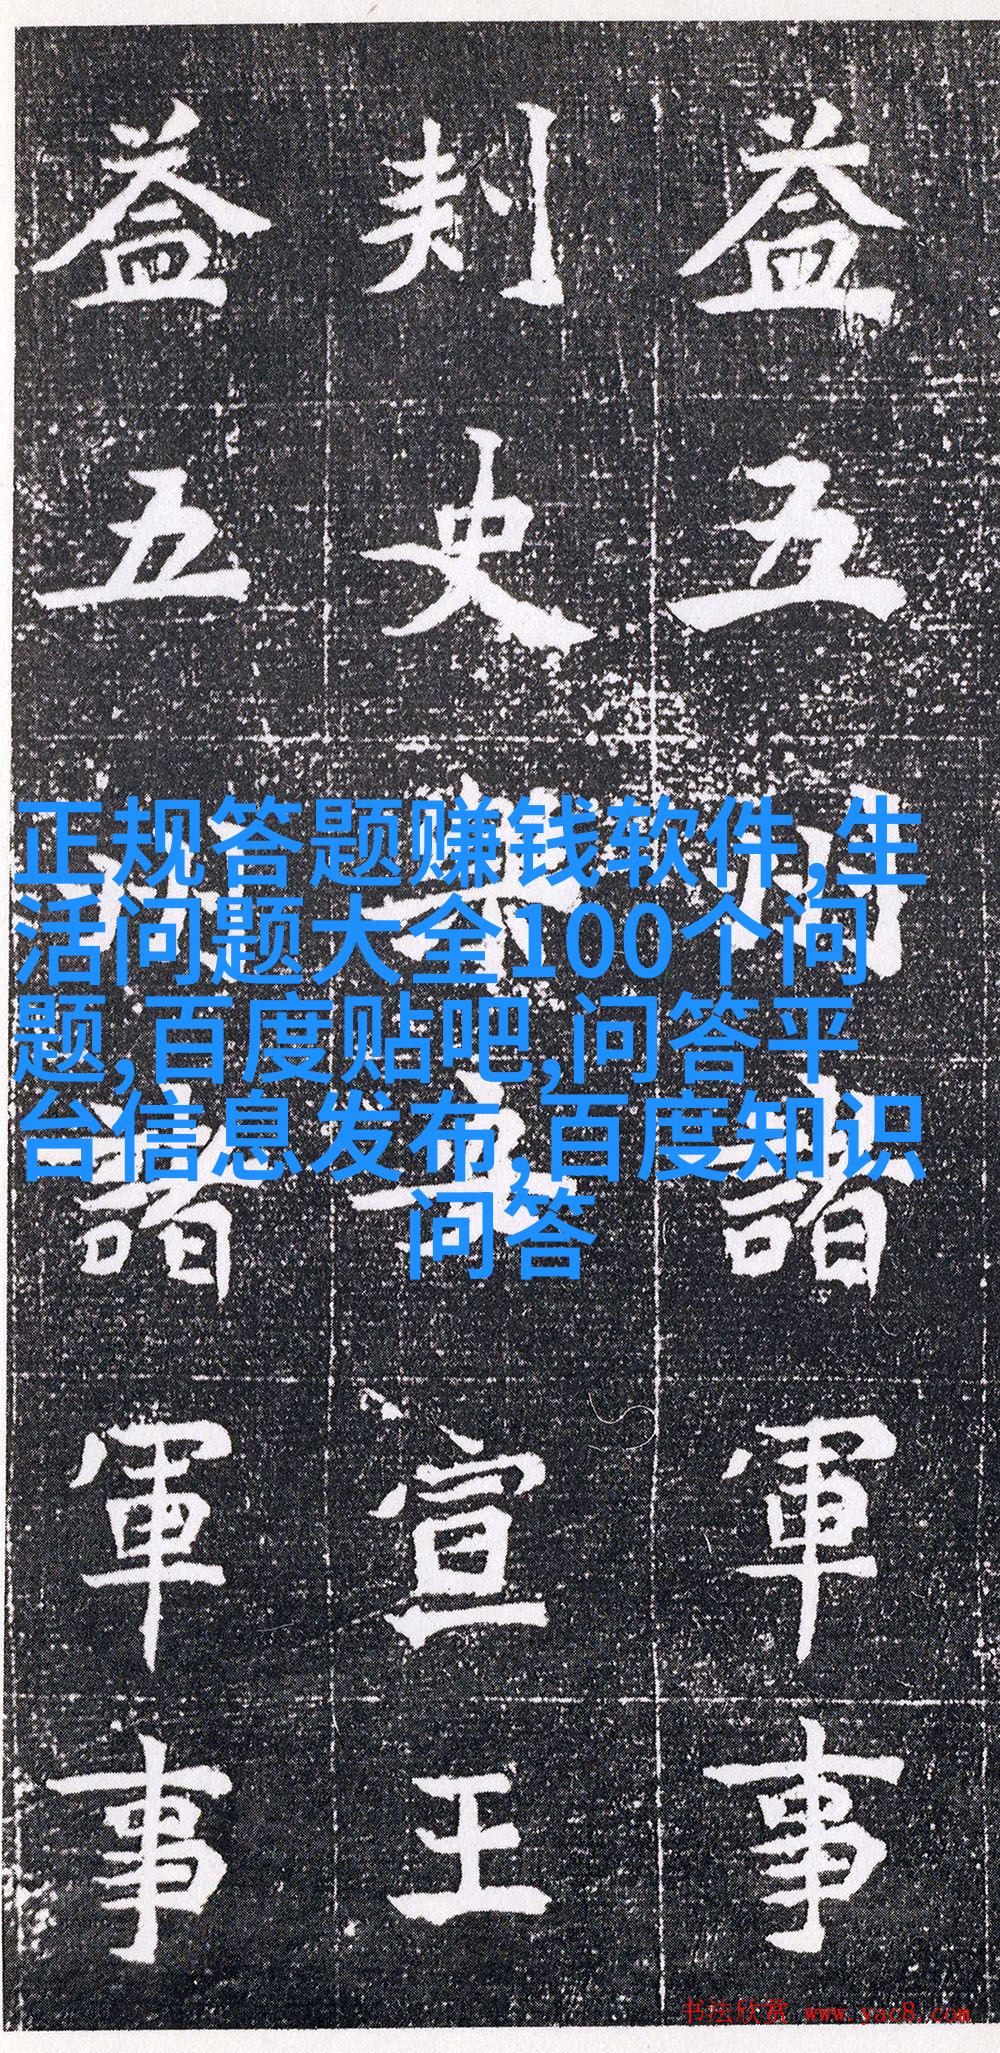 益五州諸軍事
刾史宣王
益五州諸軍事
正规答题赚钱软件,生
活问题大全100个问
题,百度贴吧,问答平
台信息发布,百度知识
问答
书法欣赏 www.yac8.com